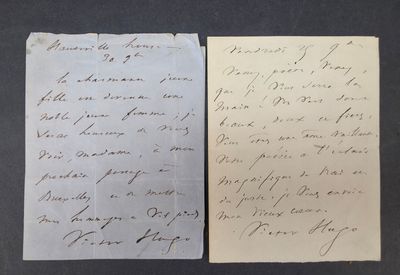 Hauteville house
30 9bre
la charmante jeune
fille est devenue une
noble jeune femme; je
serai heureux de vous
voir, madame, à mon
prochain passage à
Bruxelles et de mettre
mes hommages à vos pieds
Victor Hugo
Vendredi 9bre
Venez, poëte, venez,
que je vous serre la
main! vos vers sont
beaux, doux et fiers,
vous avez une âme vaillante.
Votre poésie a l'éclair
magnifique du vrai et
du juste. je vous envoie
mon vieux cœur.
Victor Hugo